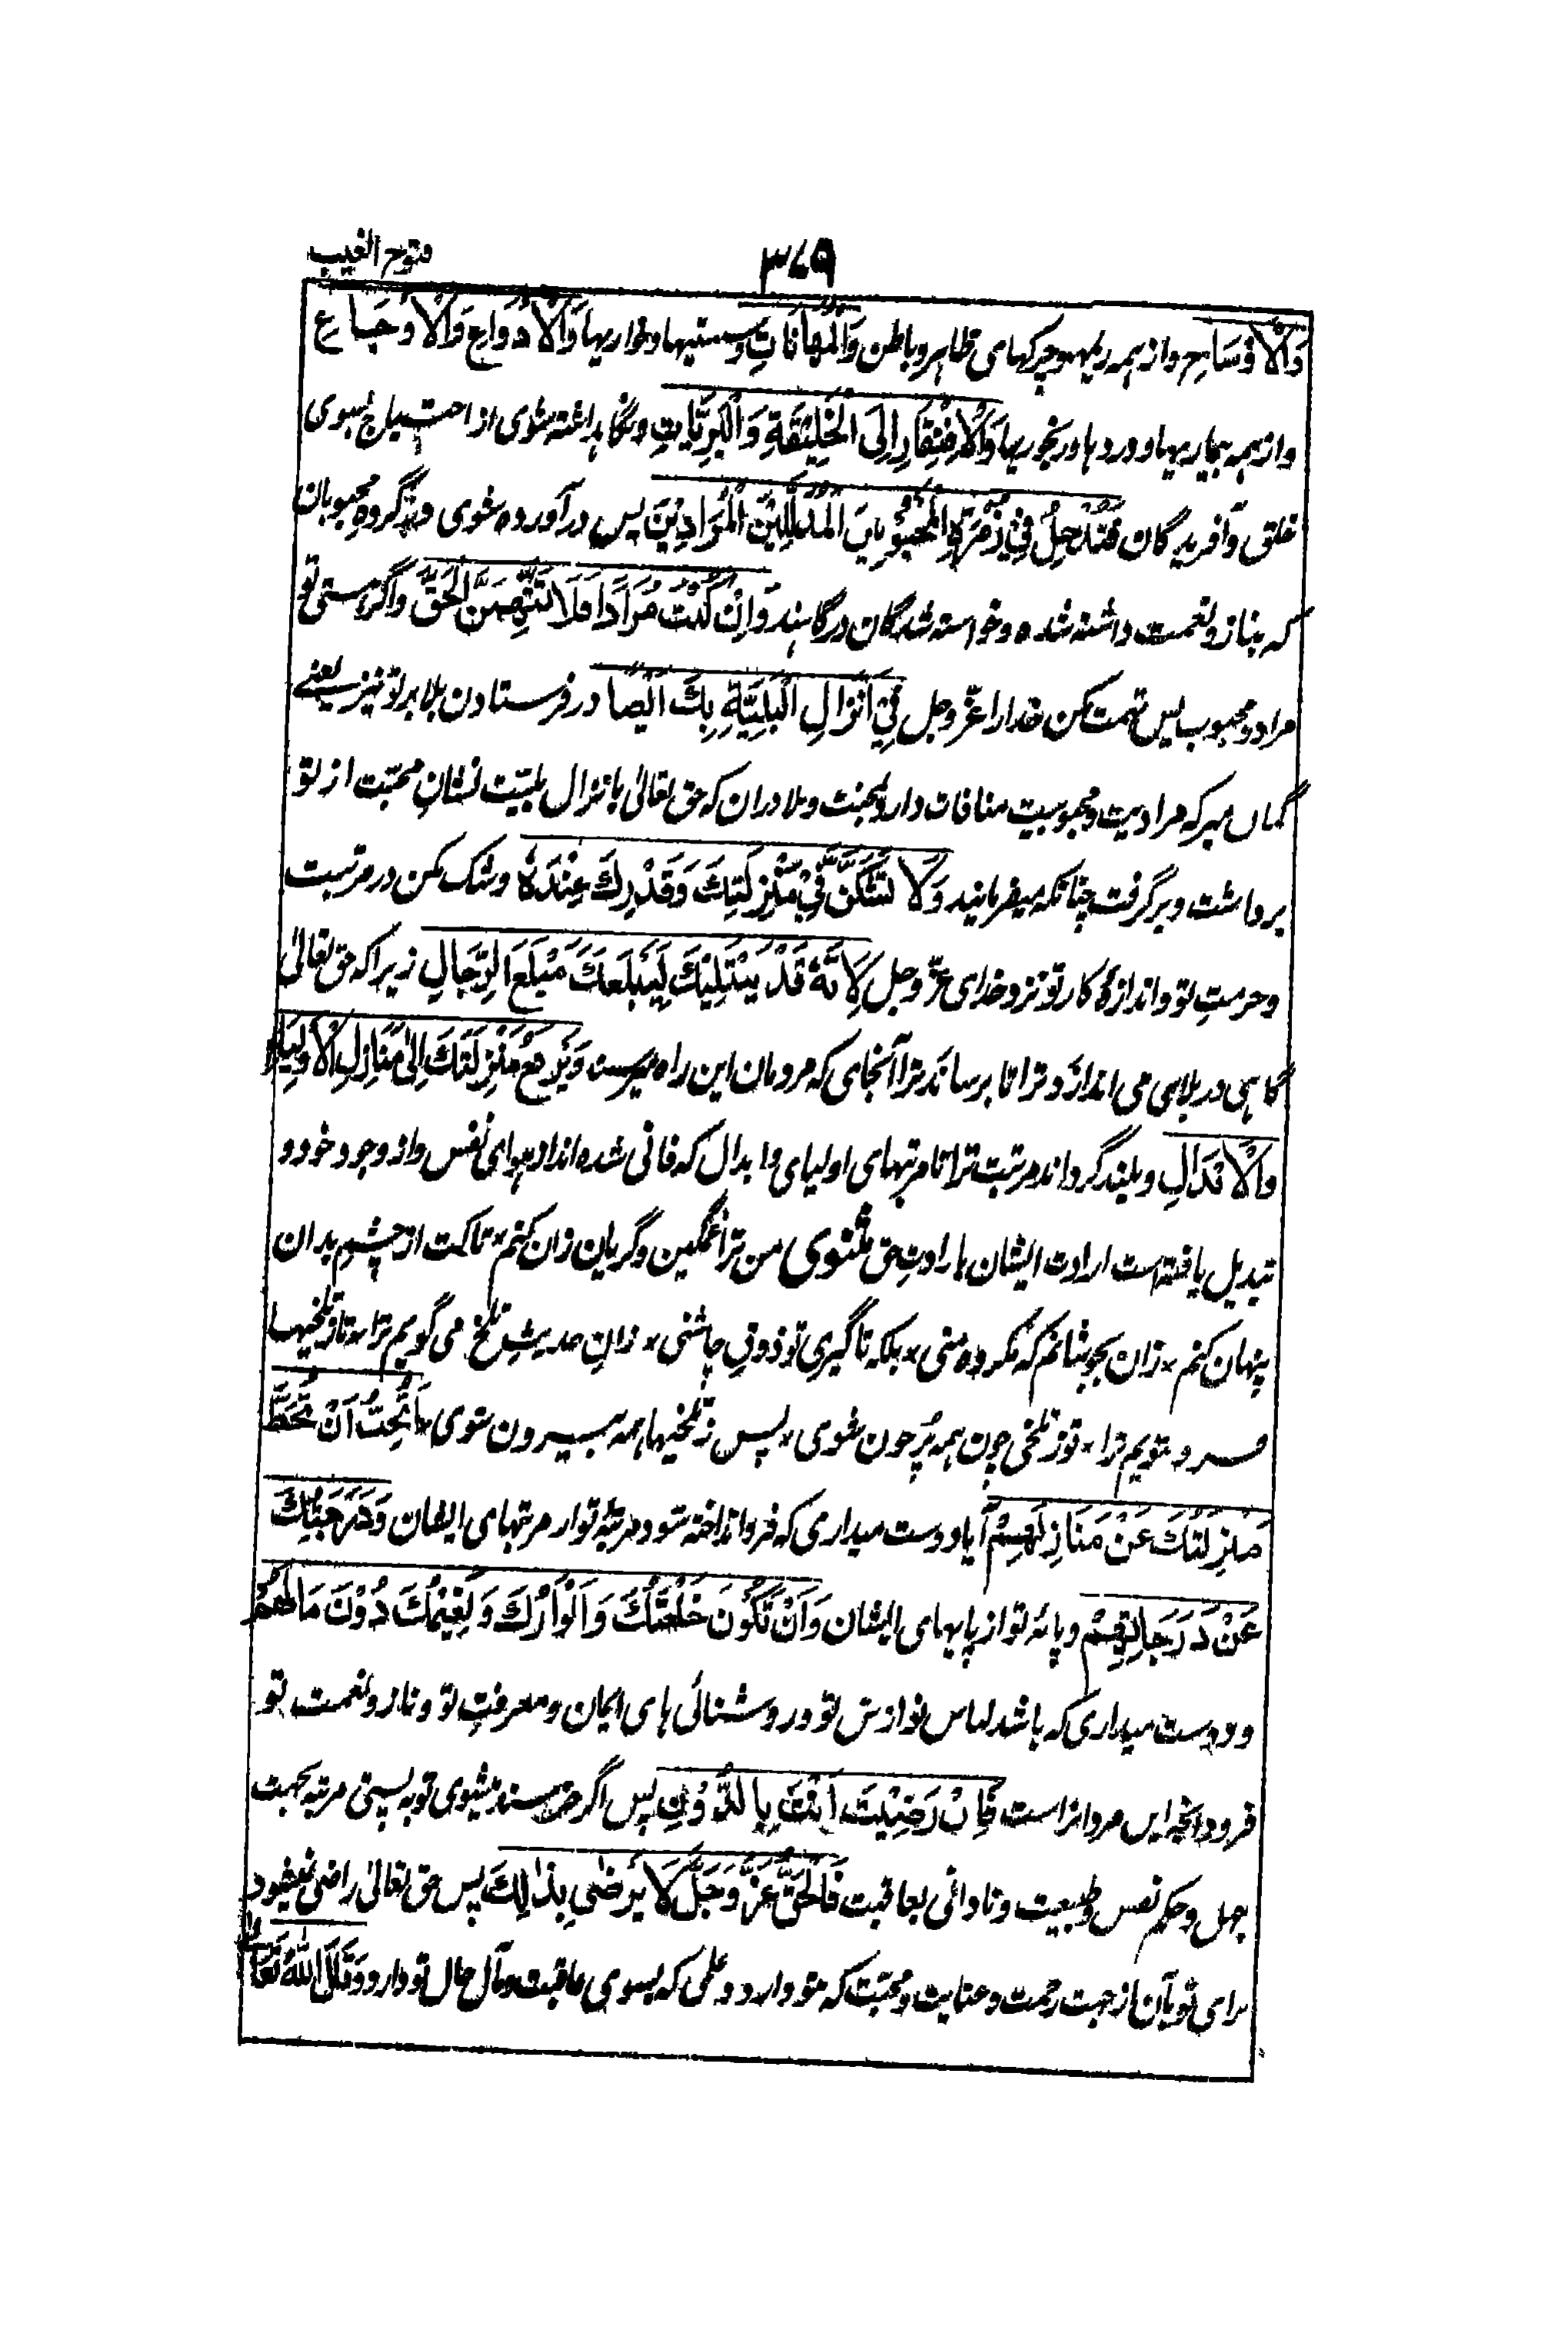 فتوح الغیب
۳۷۹
وَالْاَوْسَاخِ واز ہمہ ریمہا و چرکہای ظاہر و باطن وَالْمُهَانَاتِ و سستیہا و خواریہا وَالْاَدْوَاءِ وَالْاَوْجَاعِ
واز ہمہ بیماریہا و دردہا و رنجوریہا وَالْاِفْتِقَارِ اِلَى الْخَلِيْقَةِ وَالْبَرِيَّاتِ و نگاہداشتہ شوی از احتیاج بسوی
خلق و آفریدگان فَتُدْخَلُ فِيْ زُمْرَةِ الْمَحْبُوْبِيْنَ الْمُدَلَّلِيْنَ الْمُرَادِيْنَ پس در آوردہ شوی در گروہ محبوبان
کہ بناز و نعمت داشتہ شدہ و خواستہ شدگان درگاہند وَاِنْ كُنْتَ مُرَادًا فَلَا تَتَّهِمَنَّ الْحَقَّ واگر ہستی تو
مراد و محبوب پس تہمت مکن خدا را عزّ و جل فِيْ اِنْزَالِ الْبَلِيَّةِ بِكَ اَيْضًا در فرستادن بلا بر تو نیز یعنے
گماں مبر کہ مرادیت و محبوبیت منافات دارد بمحنت و بلا دران کہ حق تعالیٰ بانزال بلیّت نشانِ محبّت از تو
برداشت و برگرفت چنانکہ میفرمایند وَلَا تَشُكَّنَّ فِيْ مَنْزِلَتِكَ وَقَدْرِكَ عِنْدَهٗ و شک مکن در مرتبت
و حرمتِ تو و اندازۂ کار تو نزد خدای عزّ و جل لِاَنَّهٗ قَدْ يَبْتَلِيْكَ لِيُبَلِّغَكَ مَبْلَغَ الرِّجَالِ زیرا کہ حق تعالیٰ
گاہی در بلاہی می اندازد ترا تا برساند ترا آنجای کہ مردمان این راہ میرسند وَيَرْفَعُ مَنْزِلَتَكَ اِلٰى مَنَازِلِ الْاَوْلِيَاءِ
وَالْاَبْدَالِ و بلند گرداند مرتبت ترا تا مرتبہای اولیای و ابدال کہ فانی شدہ اند از ہوای نفس و از وجود خود و
تبدیل یافتہ است ارادت ایشان بارادتِ حق مثنوی من ترا غمگین و گریان زان کنم × تا کت از چشمِ بدان
پنہان کنم × زان بجوشانم کہ مکروہ منی × بلکہ تا گیری تو ذوقِ چاشنی × زان حدیثِ تلخ می گویم ترا × تا ز تلخیہا
فرو شویم ترا × تو ز تلخی چون ہمہ پُر خون شوی × پس ز تلخیہا ہمہ بیرون شوی × اَتُحِبُّ اَنْ تُحَطَّ
مَنْزِلَتُكَ عَنْ مَنَازِلِهِمْ آیا دوست میداری کہ فرو انداختہ شود مرتبۂ تو از مرتبہای ایشان وَدَرَجَتُكَ
عَنْ دَرَجَاتِهِمْ و پایۂ تو از پایہای ایشان وَاَنْ تَكُوْنَ خِلْعَتُكَ وَاَنْوَارُكَ وَنَعِيْمُكَ دُوْنَ مَا لَهُمْ
و دوست میداری کہ باشد لباس نوازش تو و روشنائی ہای ایمان و معرفتِ تو و ناز و نعمت تو
فرود آنچہ ایں مردانراست فَاِنْ رَضِيْتَ اَنْتَ بِالدُّوْنِ پس اگر خرسند میشوی تو بہ پستی مرتبہ بجہت
جہل و حکم نفس و طبیعت و نادانی بعاقبت فَالْحَقُّ عَزَّ وَجَلَّ لَا يَرْضٰى بِذٰلِكَ پس حق تعالیٰ راضی نمیشود
برای تو بآن از جہت رحمت و عنایت و محبّت کہ بتو دارد و علمی کہ بسوی عاقبت و مآل حال تو دارد وَقَالَ اللّٰهُ تَعَالٰى